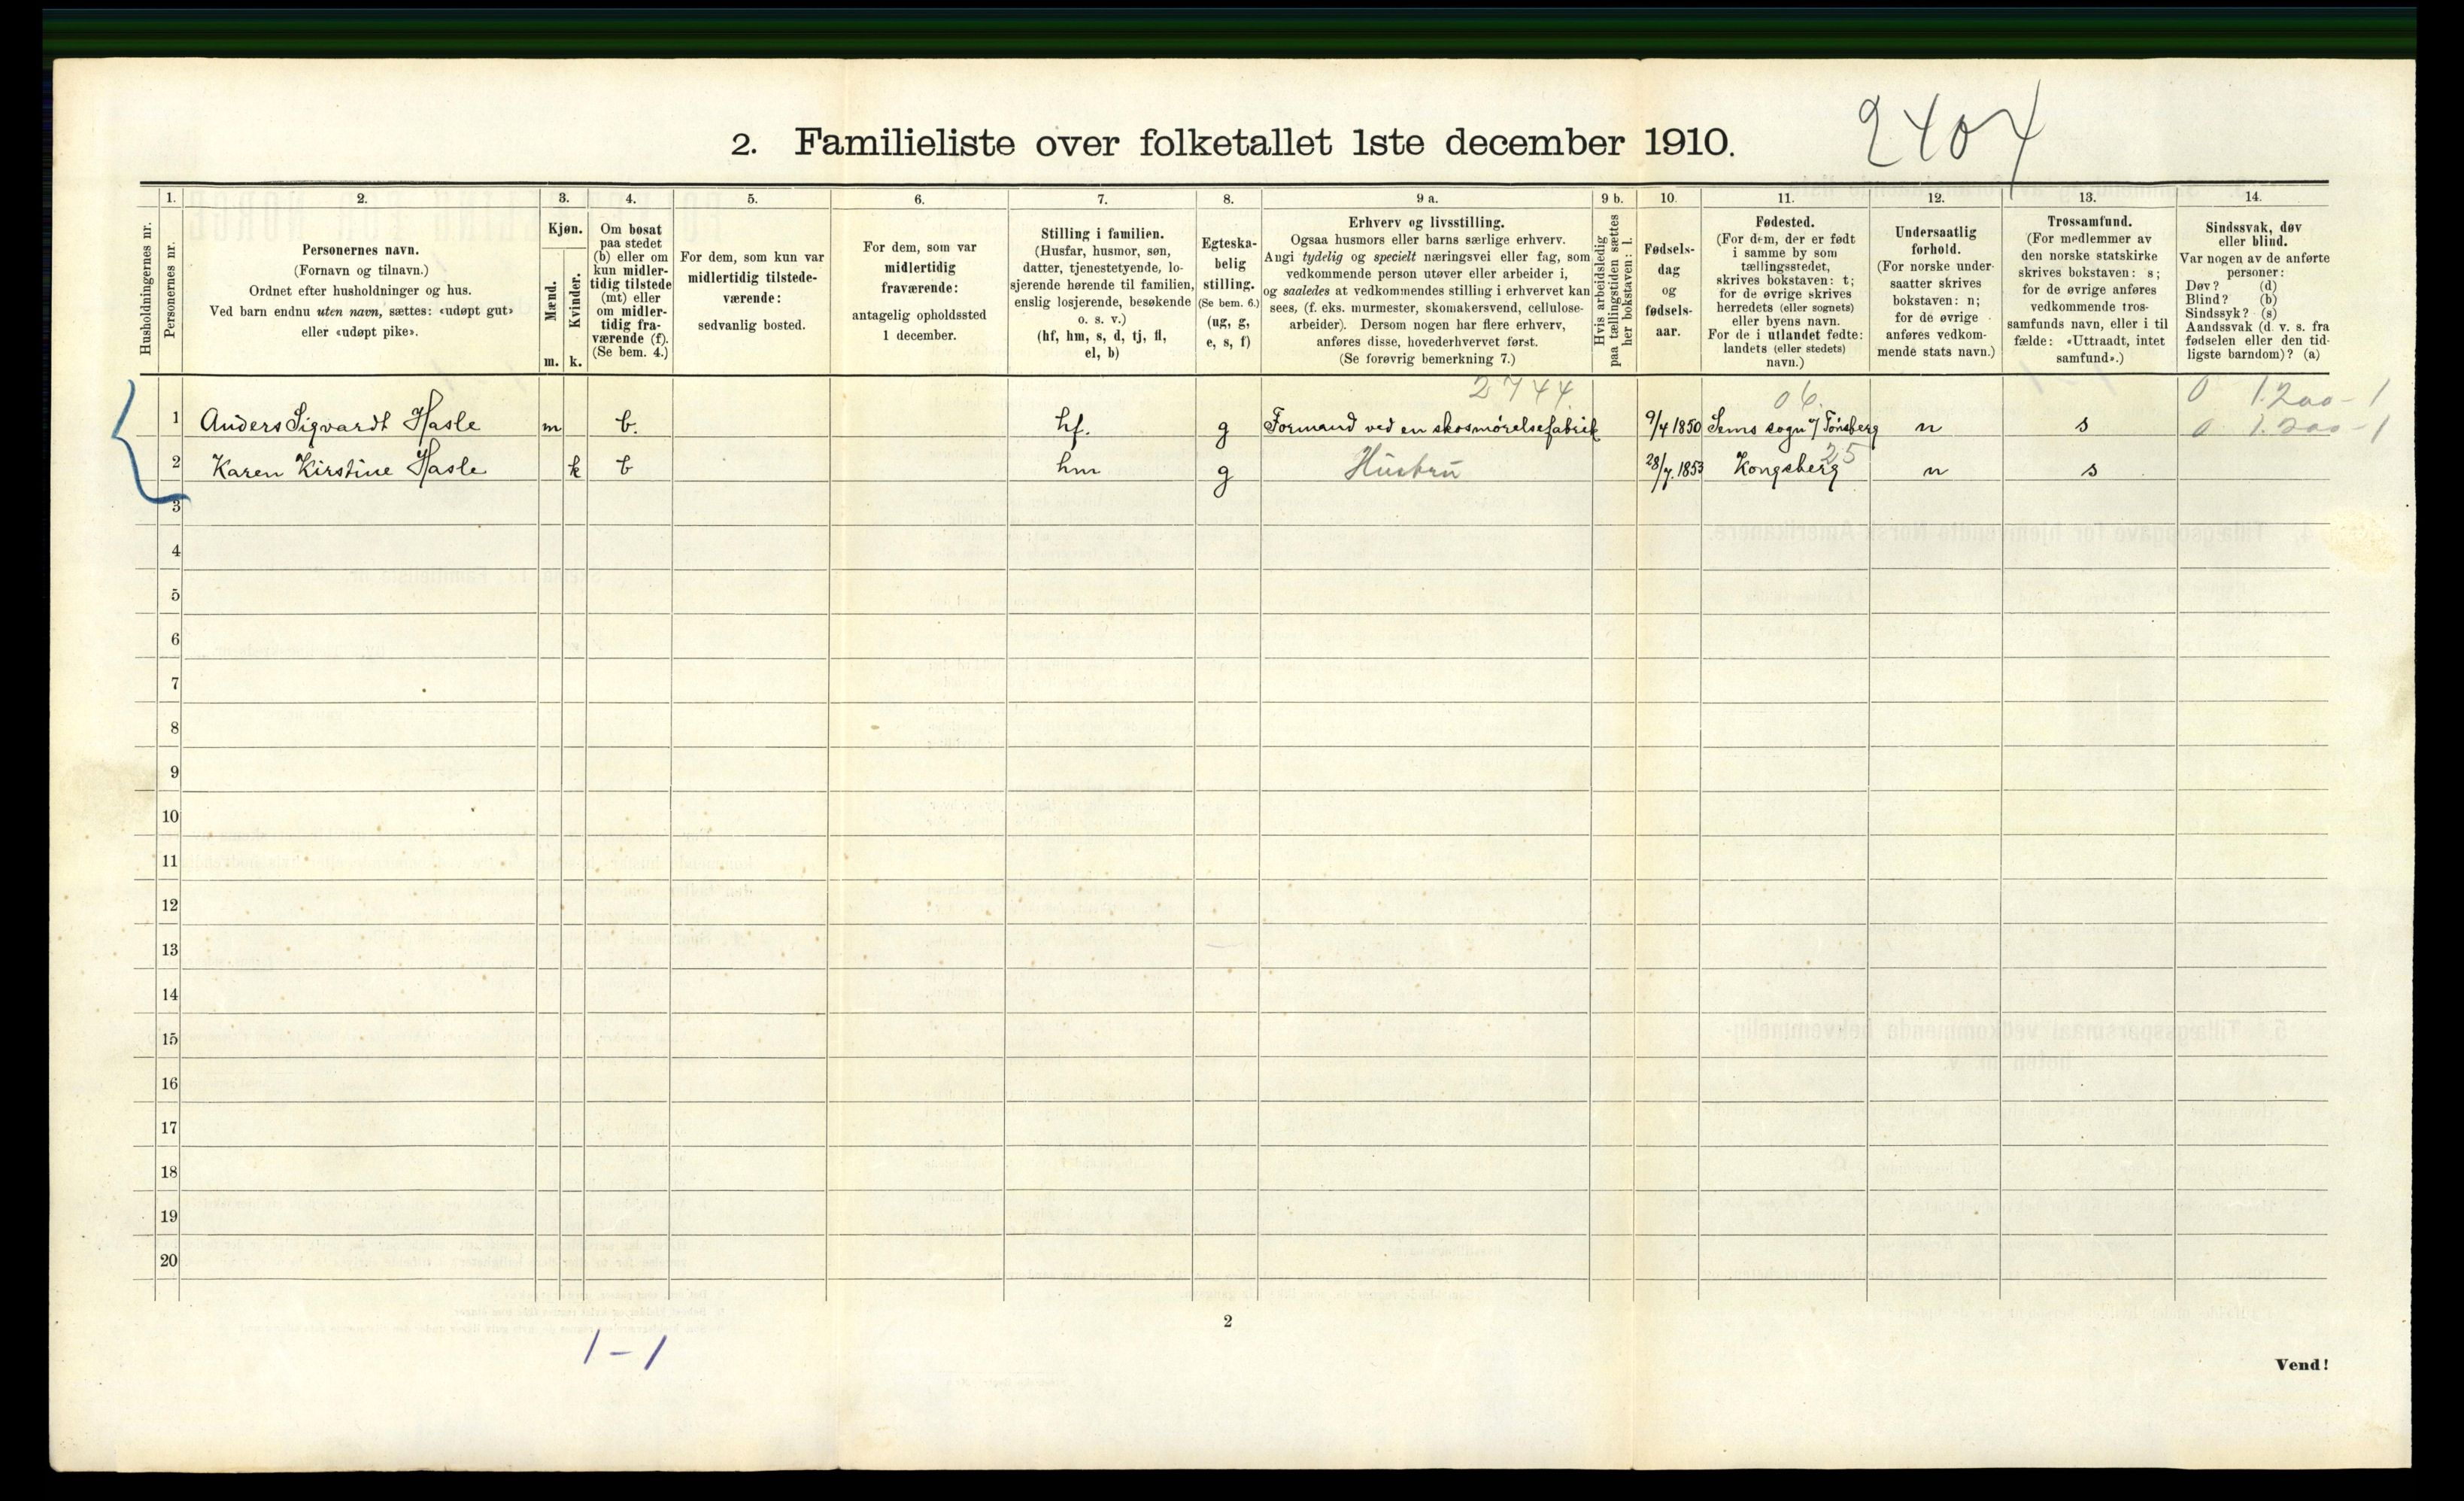 2404
2. Familieliste over folketallet 1ste december 1910.
1. 2. 3. 4. 5. 6. 7. 8. 9 a. 9 b. 10. 11. 12. 13. 14.
Husholdningernes nr.
Personernes nr.
Personernes navn.
(Fornavn og tilnavn.)
Ordnet efter husholdninger og hus.
Ved barn endnu uten navn, sættes: «udøpt gut»
eller «udøpt pike».
Kjøn.
Mænd.
m.
Kvinder.
k.
Om bosat
paa stedet
(b) eller om
kun midler-
tidig tilstede
(mt) eller
om midler-
tidig fra-
værende (f).
(Se bem. 4.)
For dem, som kun var
midlertidig tilstede-
værende:
sedvanlig bosted.
For dem, som var
midlertidig
fraværende:
antagelig opholdssted
1 december.
Stilling i familien.
(Husfar, husmor, søn,
datter, tjenestetyende, lo-
sjerende hørende til familien,
enslig losjerende, besøkende
o. s. v.)
(hf, hm, s, d, tj, fl,
el, b)
Egteska-
belig
stilling.
(Se bem. 6.)
(ug, g,
e, s, f)
Erhverv og livsstilling.
Ogsaa husmors eller barns særlige erhverv.
Angi tydelig og specielt næringsvei eller fag, som
vedkommende person utøver eller arbeider i,
og saaledes at vedkommendes stilling i erhvervet kan
sees, (f. eks. murmester, skomakersvend, cellulose-
arbeider). Dersom nogen har flere erhverv,
anføres disse, hovederhvervet først.
(Se forøvrig bemerkning 7.)
Hvis arbeidsledig
paa tællingstiden sættes
her bokstaven: l.
Fødsels-
dag
og
fødsels-
aar.
Fødested.
(For dem, der er født
i samme by som
tællingsstedet,
skrives bokstaven: t;
for de øvrige skrives
herredets (eller sognets)
eller byens navn.
For de i utlandet fødte:
landets (eller stedets)
navn.)
Undersaatlig
forhold.
(For norske under-
saatter skrives
bokstaven: n;
for de øvrige
anføres vedkom-
mende stats navn.)
Trossamfund.
(For medlemmer av
den norske statskirke
skrives bokstaven: s;
for de øvrige anføres
vedkommende tros-
samfunds navn, eller i til
fælde: «Uttraadt, intet
samfund».)
Sindssvak, døv
eller blind.
Var nogen av de anførte
personer:
Døv? (d)
Blind? (b)
Sindssyk? (s)
Aandssvak (d. v. s. fra
fødselen eller den tid-
ligste barndom)? (a)
2744 06. 0 1.200-1
1 Anders Sigvardt Hasle m b. hf. g Formand ved en skosmørelsefabrik 9/4 1850 Sems sogn v/ Tønsberg n s 0 1.200-1
2 Karen Kirstine Hasle k b hm g Hustru 28/7.1853 Kongsberg 25 n s
3
4
5
6
7
8
9
10
11
12
13
14
15
16
17
18
19
20
2
1-1
Vend!